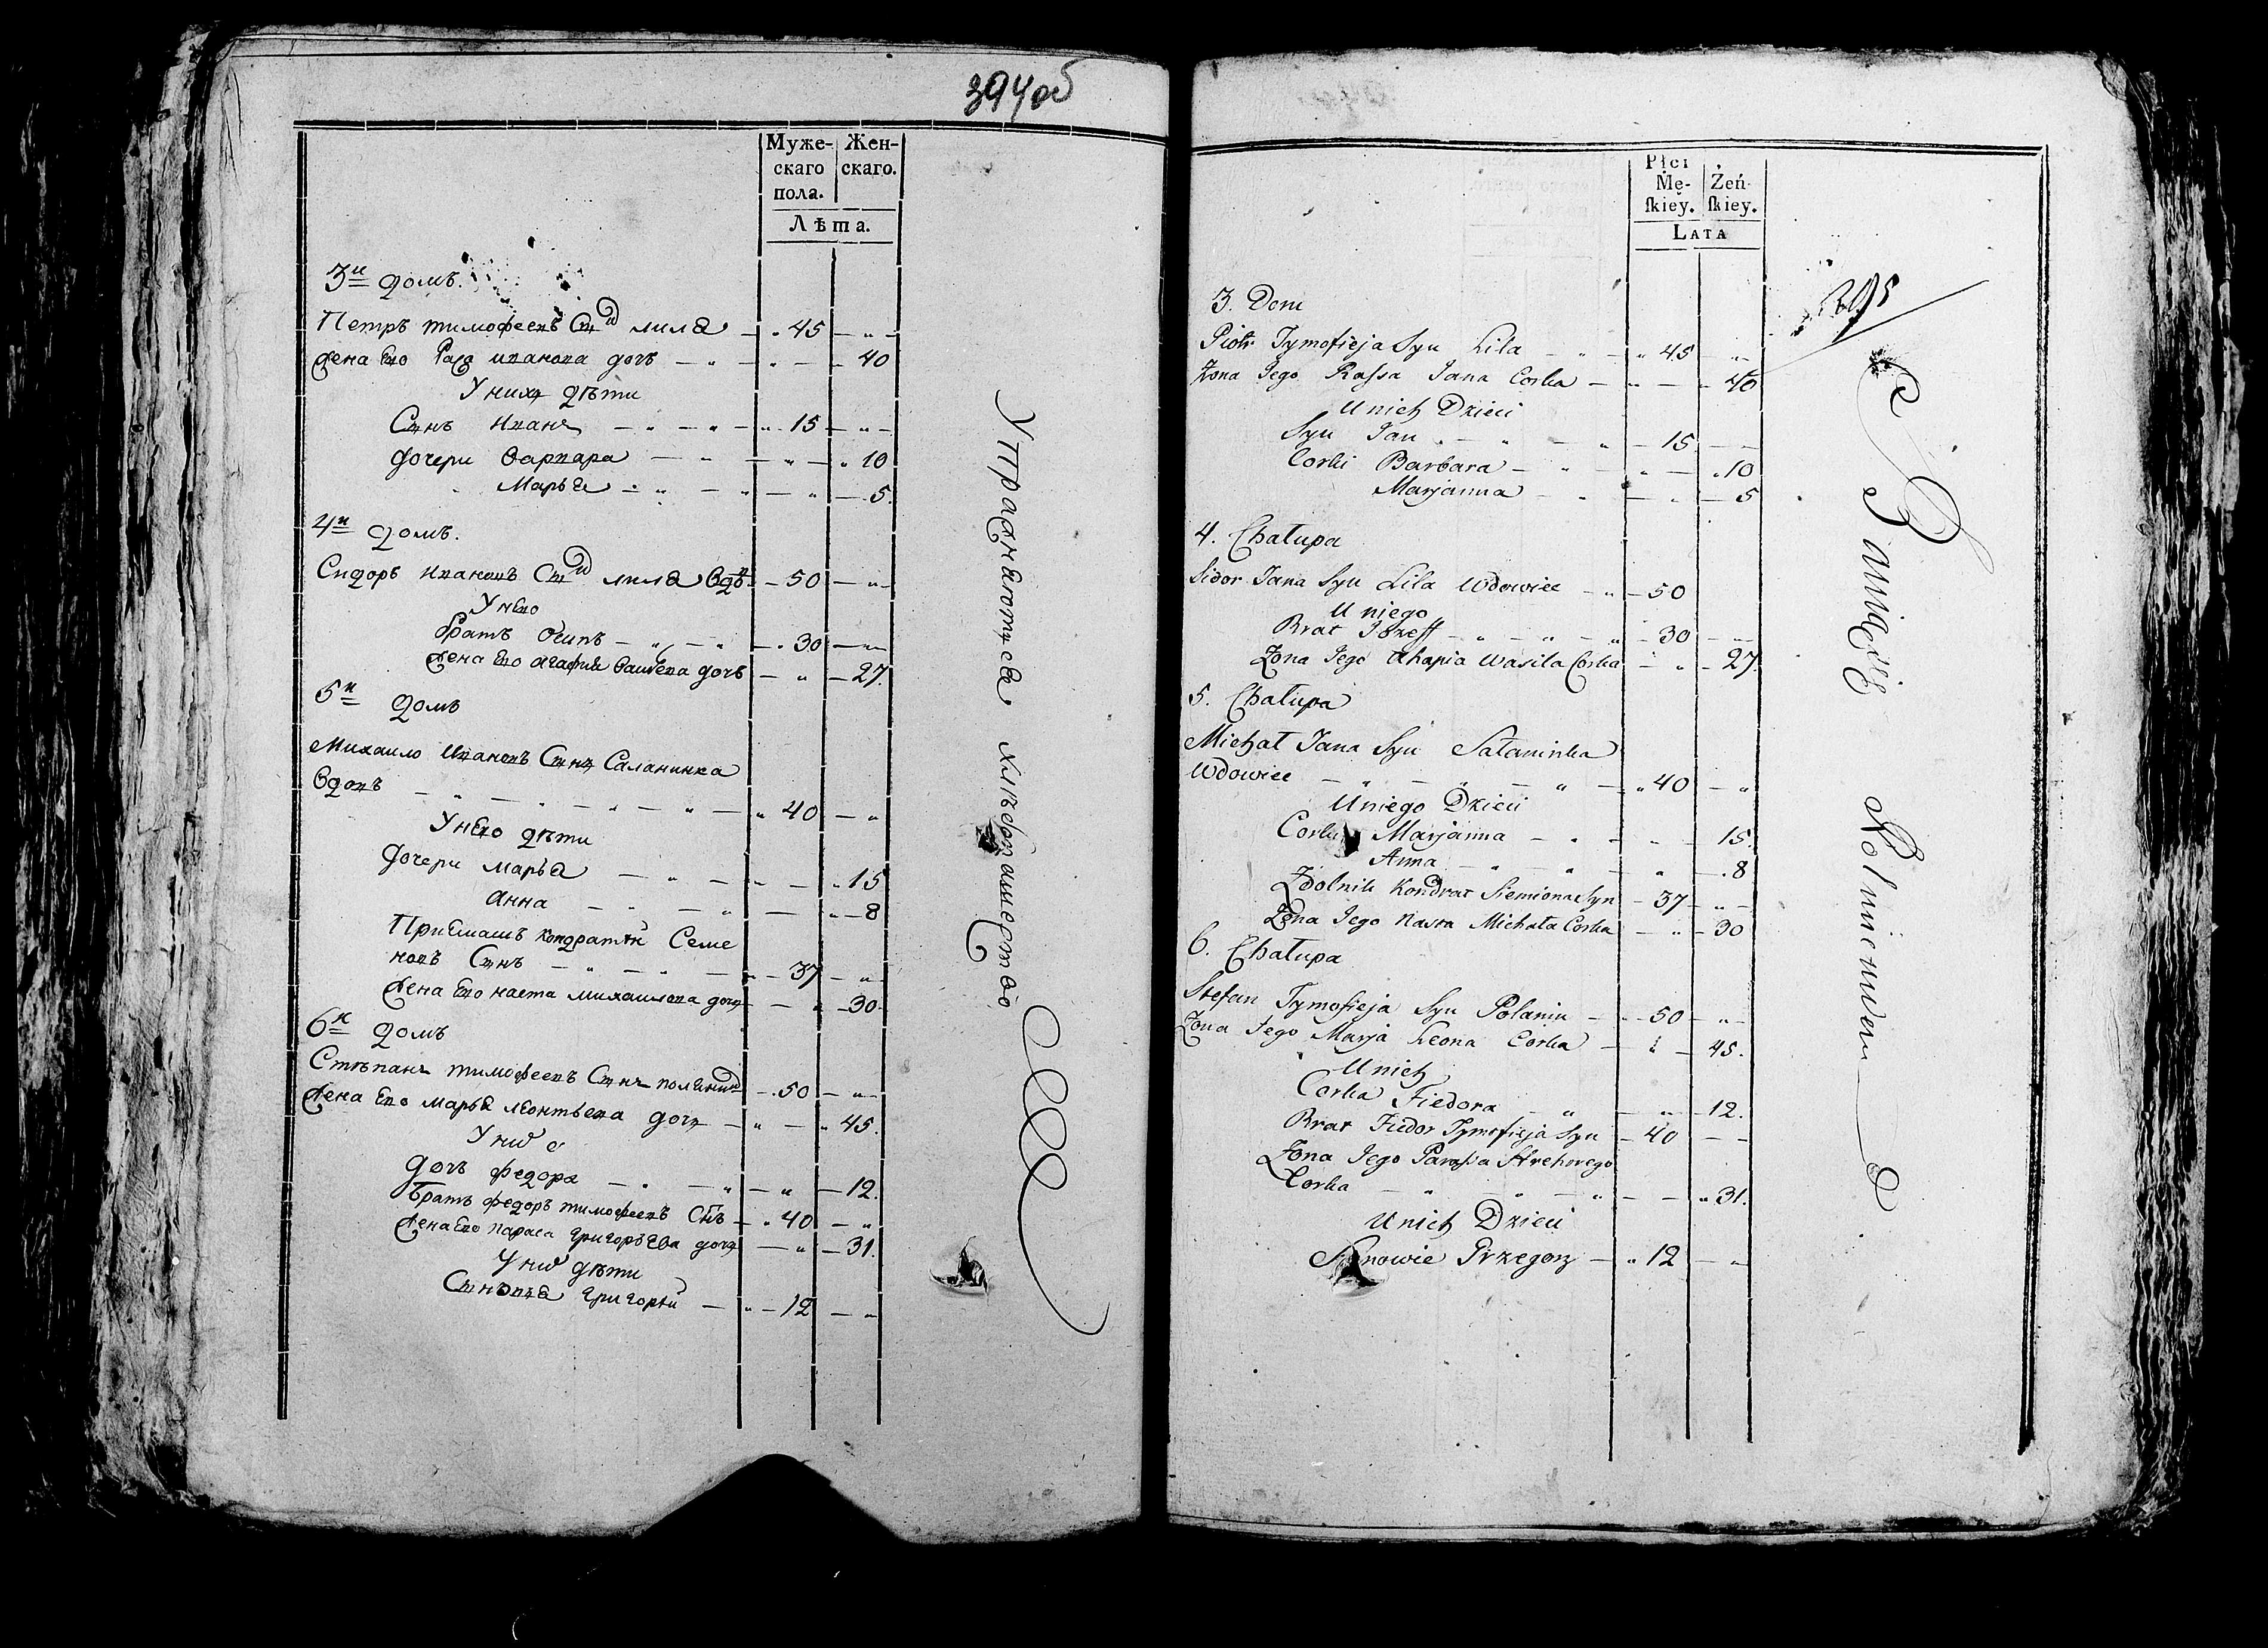 394 об
Муже-
скаго
пола.
Жен-
скаго.
Лѣта.
3й домъ.
Петръ тимофеевъ Сынъ лила 45
Жена Его Раса иванова дочь 40
У нихъ дѣти
Сынъ Иванъ 15
Дочери Варвара 10
Марья 5.
4й домъ.
Сидоръ Ивановъ Сынъ лила Вдвъ 50
У нево
братъ Осипъ 30
Жена Ево Агафия Васильева дочь 27.
5й домъ
Михаило Ивановъ Сынъ Саланинка
Вдовъ 40
У нево дѣти
Дочери Марья 15
Анна 8
Приемышъ Кондратий Семе
новъ Сынъ 37
Жена Ево наста михаилова дочь 30.
6й домъ
Стѣпанъ тимофеевъ Сынъ полянин 50
Жена Ево марья леонтьева дочь 45.
У них
Дочь федора 12.
Братъ федоръ тимофеевъ Снъ 40
Жена Ево параса григорьева дочь 31.
У них дѣти
Сыновья григорий 12
Упражняются хлѣбопашество
Płci
Mę-
ſkiey.
Żeń-
ſkiey.
LATA
395
3. Dom
Piotr Tymofieja Syn Lila 45
Zona Jego Rassa Jana Corka 40
U nich Dzieci
Syn Jan 15
Corki Barbara 10
Marjanna 5
4. Chałupa
Sidor Jana Syn Lila Wdowiec 50
U niego
Brat Jozeff 30
Zona Jego Ahapia Wasila Corka 27.
5. Chałupa
Michał Jana Syn Sałaninka
Wdowiec 40
U niego Dzieci
Corki Marjanna 15.
Anna 8
Zdolnik Kondrat Siemiona Syn 37
Zona Jego Nasta Michała Corka 30
6. Chałupa
Stefan Tymofieja Syn Polanin 50
Zona Jego Marja Leona Corka 45.
U nich
Corka Fiedora 12.
Brat Fiedor Tymofieja Syn 40
Zona Jego Parassa Hrehorego
Corka 31.
U nich Dzieci
Synowie Grzegorz 12
Rolnictwem